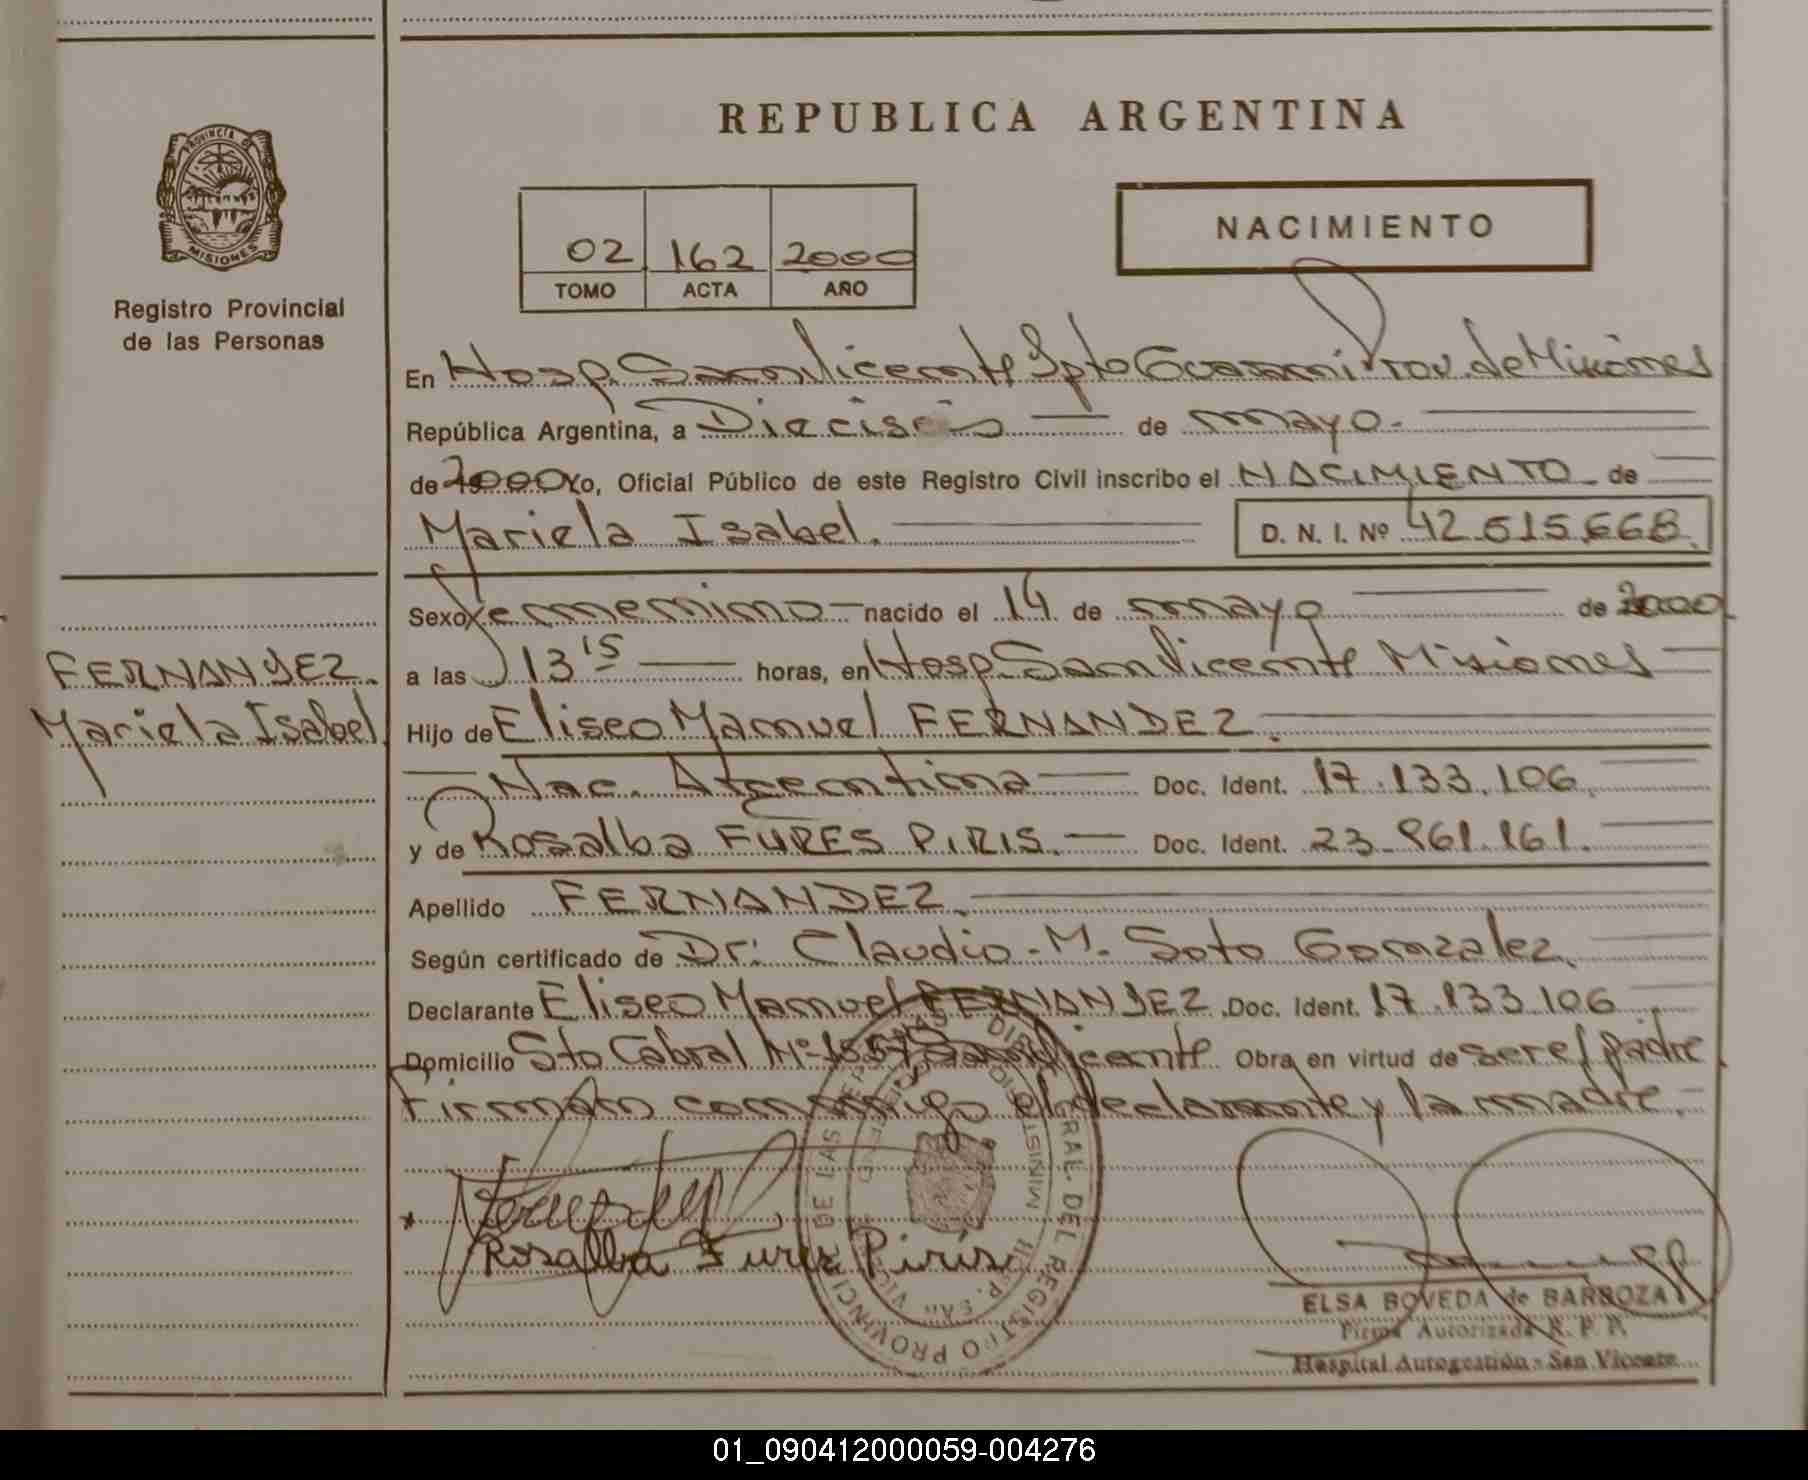 REPUBLICA ARGENTINA
PROVINCIA DE
MISIONES
Registro Provincial
de las Personas
02 162 2000
TOMO ACTA AÑO
NACIMIENTO
En Hosp. San Vicente Dpto Guarani Prov. de Misiones
República Argentina, a Dieciseis de mayo.
de 2000 Yo, Oficial Público de este Registro Civil inscribo el NACIMIENTO de
Mariela Isabel. D. N. I. Nº 42.515.668
Sexo femenino nacido el 14 de mayo de 2000
FERNANDEZ.
Mariela Isabel
a las 13 15 horas, en Hosp San Vicente Misiones
Hijo de Eliseo Manuel FERNANDEZ.
Nac. Argentina Doc. Ident. 17.133.106
y de Rosalba FURES PIRIS. Doc. Ident. 23.961.161.
Apellido FERNANDEZ.
Según certificado de Dr: Claudio M. Soto Gonzalez.
Declarante Eliseo Manuel FERNANDEZ. Doc. Ident. 17.133.106
Domicilio Sto Cabral Nº San Vicente Obra en virtud de ser el padre
Firman conmigo el declarante y la madre.
DIRECCION GENERAL DEL REGISTRO PROVINCIAL DE LAS PERSONAS
Rosalba Piris
ELSA BOVEDA de BARBOZA
Firma Autorizada R. P. P.
Hospital Autogestión - San Vicente
01_090412000059-004276